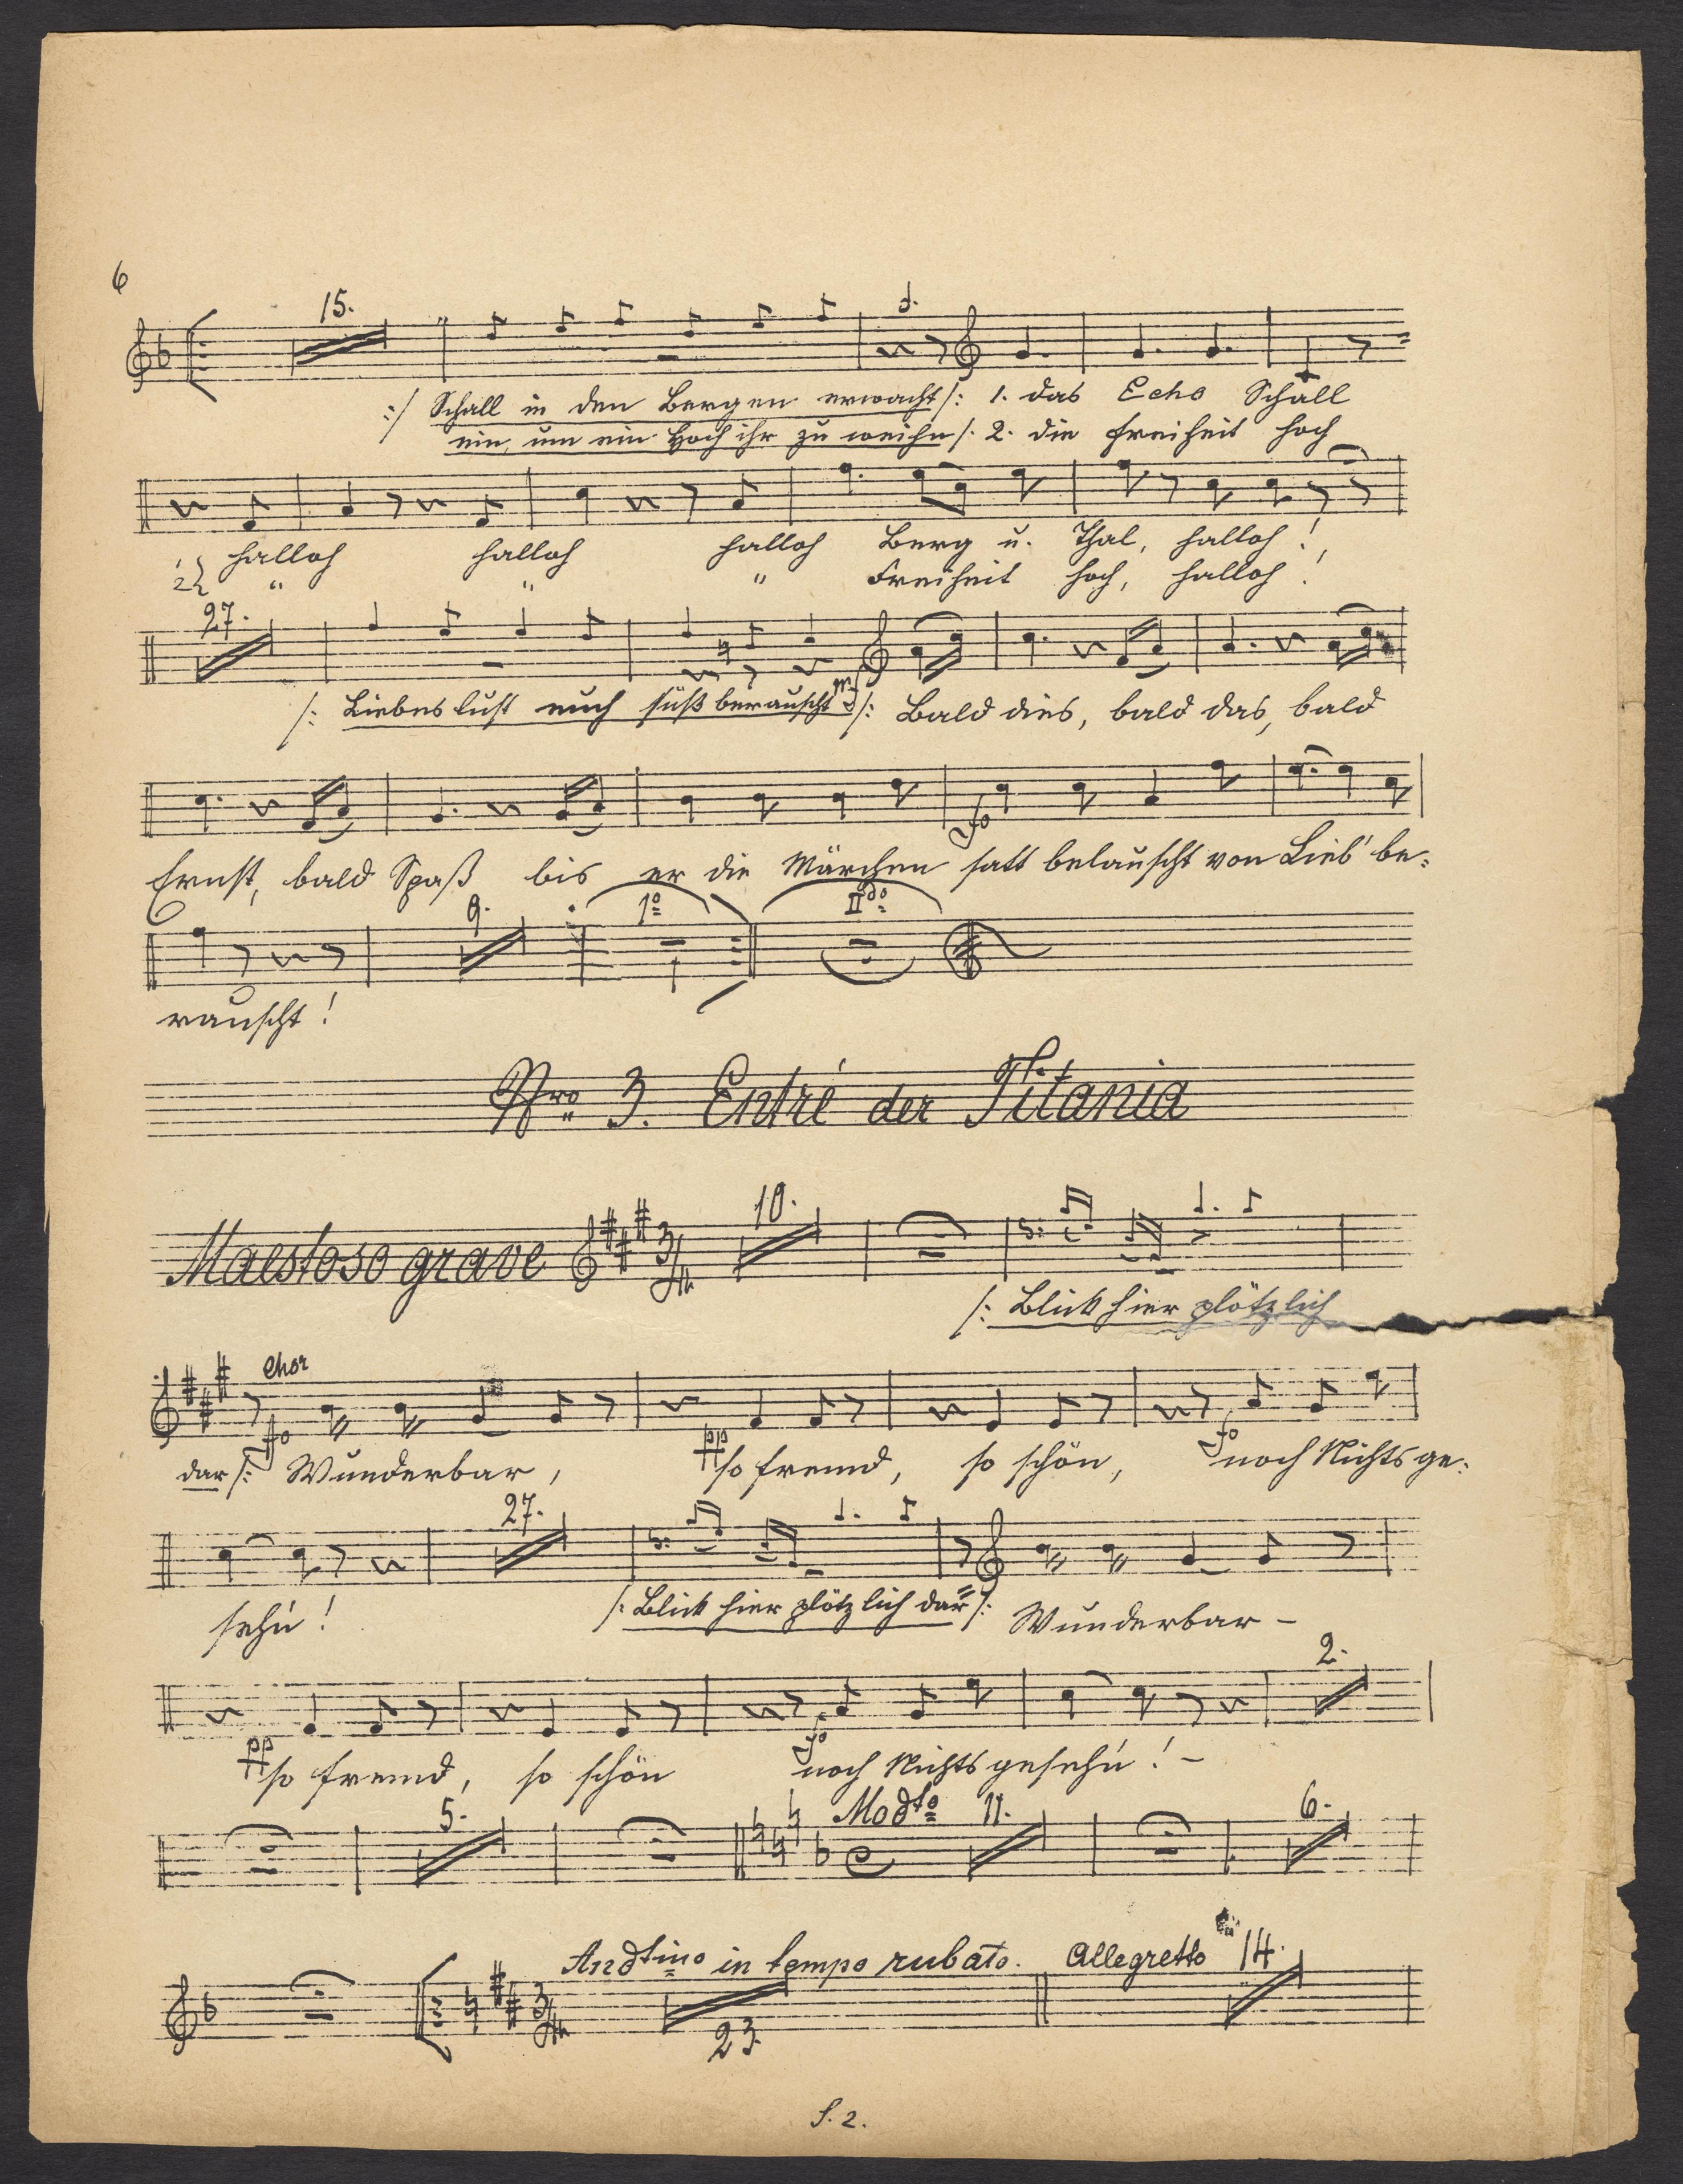 6
15.
:/ Schall in den Bergen erwacht /: 1. das Echo Schall
ein, um ein Hoch ihr zu weihn /: 2. die Freiheit hoch
halloh halloh halloh Berg u. Thal, halloh!
2 " " " Freiheit hoch, halloh!
27.
/: Liebeslust euch süß berauscht /: Bald dies, bald das, bald
fo
Ernst, bald Spaß bis er die Märchen satt belauscht von Lieb' be=
9. 1o IIdo
rauscht!
Nro 3. Entré der Titania
10.
Maestoso grave 3/4
/: Blick hier plötzlich
Chor
dar /: fo Wunderbar, pp so fremd, so schön, fo noch Nichts ge=
27.
sehn! /: Blick hier plötzlich dar /: Wunderbar –
2.
pp so fremd, so schön fo noch Nichts gesehn! –
5. Modto 11. 6.
Andtino in tempo rubato. Allegretto 14.
3/4 23
S. 2.